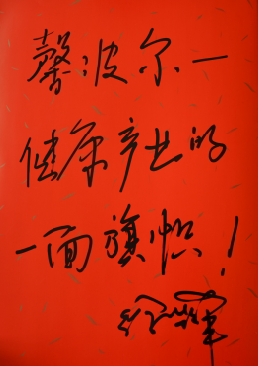 馨波尔一
健康产业的
一面旗帜！